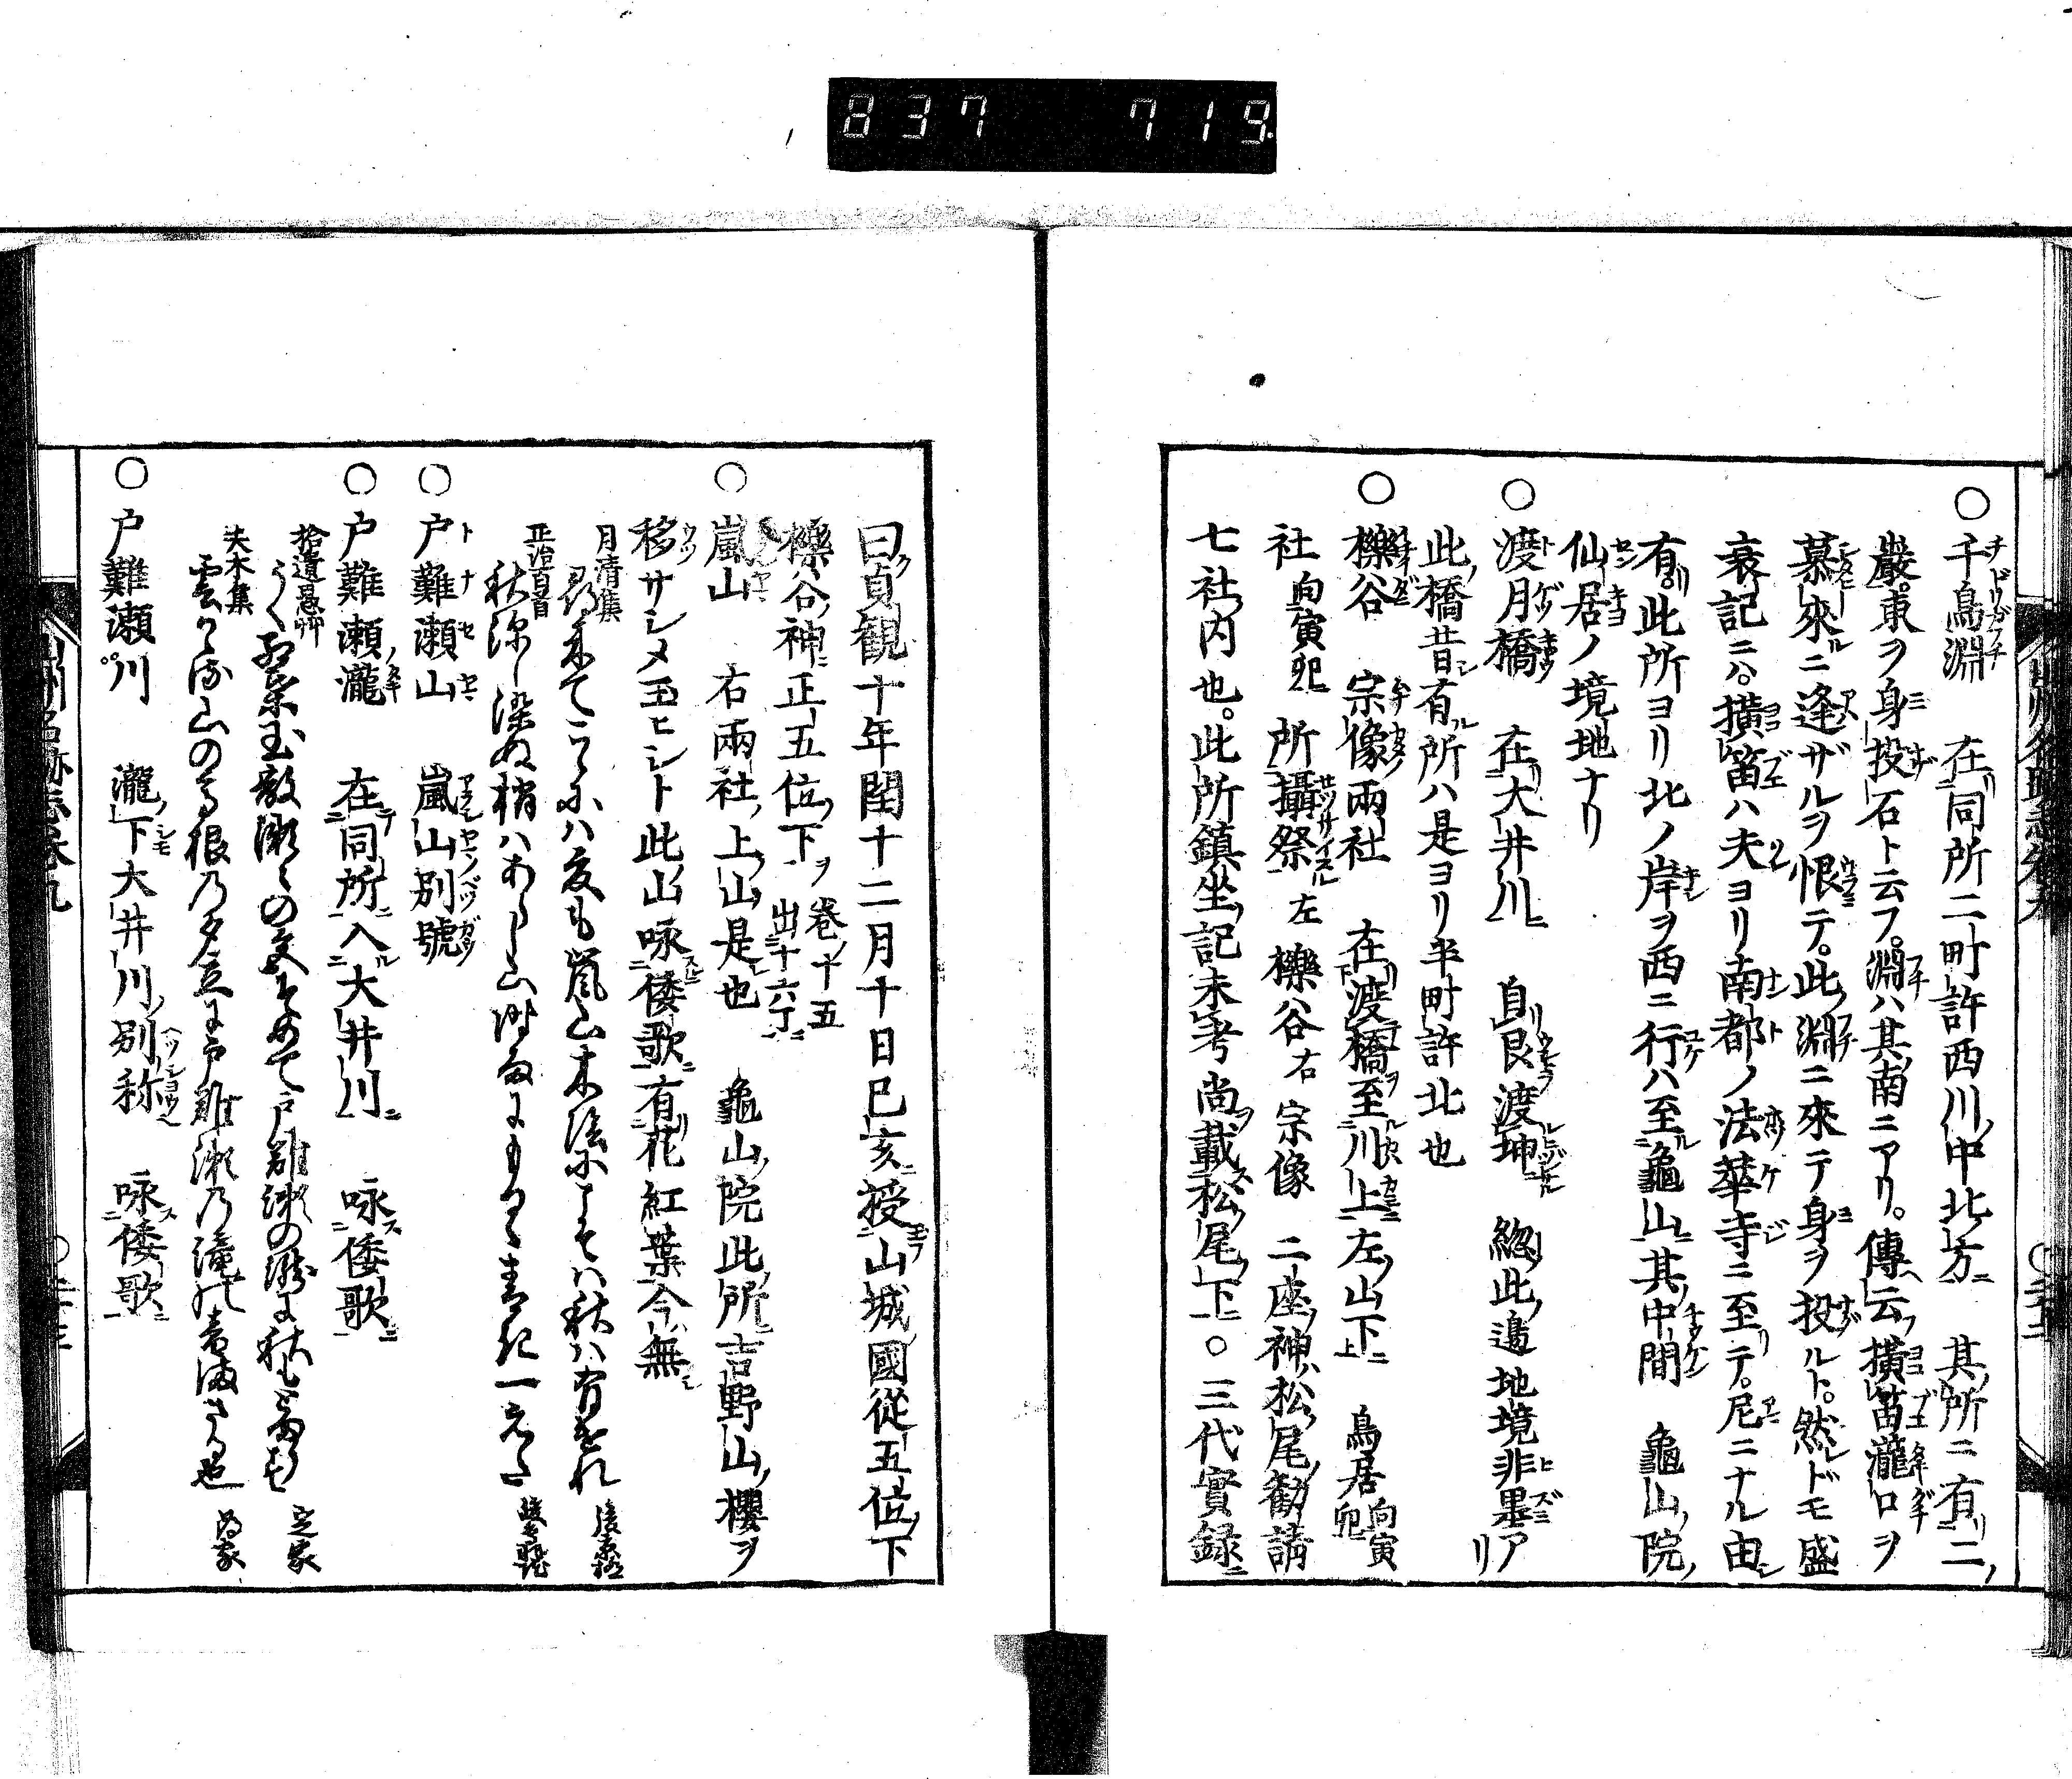 837 719
○千鳥淵 在同所二町許西川中北方 其所ニ有二
巖東ヲ身投石ト云フ。淵ハ其南ニアリ。傳云横笛瀧口ヲ
慕來ルニ逢ザルヲ恨テ。此淵ニ來テ身ヲ投ルト。然レドモ盛
衰記ニハ。横笛ハ夫ヨリ南都ノ法華寺ニ至リテ。尼ニナル由
有リ此所ヨリ北ノ岸ヲ西ニ行ハ至龜山其中間 龜山院
仙居ノ境地ナリ
○渡月橋 在大井川 自艮渡坤 総此邉地境非墨アリ
此橋昔有ル所ハ是ヨリ半町許北也
○櫟谷 宗像兩社 在渡橋至川上左山下上 鳥居向寅卯
社向寅卯 所攝祭左櫟谷右宗像 二座神松尾勧請
七社内也。此所鎮坐記未考尚載松尾下○三代實録
曰貞観十年閏十二月十日己亥授山城國從五位下
櫟谷神正五位下ヲ 巻十五出三十六丁
○嵐山 右兩社上山是也 龜山院此所吉野山櫻ヲ
移サシメ玉ヒシト此山咏倭歌有花紅葉今無
月清集 尋来てこゝには夏も嵐山木陰にこそハ秋ハ有けれ 後京極
正治百首 秋深し染ぬ梢ハあらし山
○戸難瀬山 嵐山別號
○戸難瀬瀧 在同所入大井川 咏倭歌
拾遺愚艸 戸難瀬の瀧に秋も 定家
夫木集 雲かゝる山の高根乃夕立に戸難瀬乃滝の音まさる也 為家
○戸難瀬川 瀧下大井川別称 咏倭歌